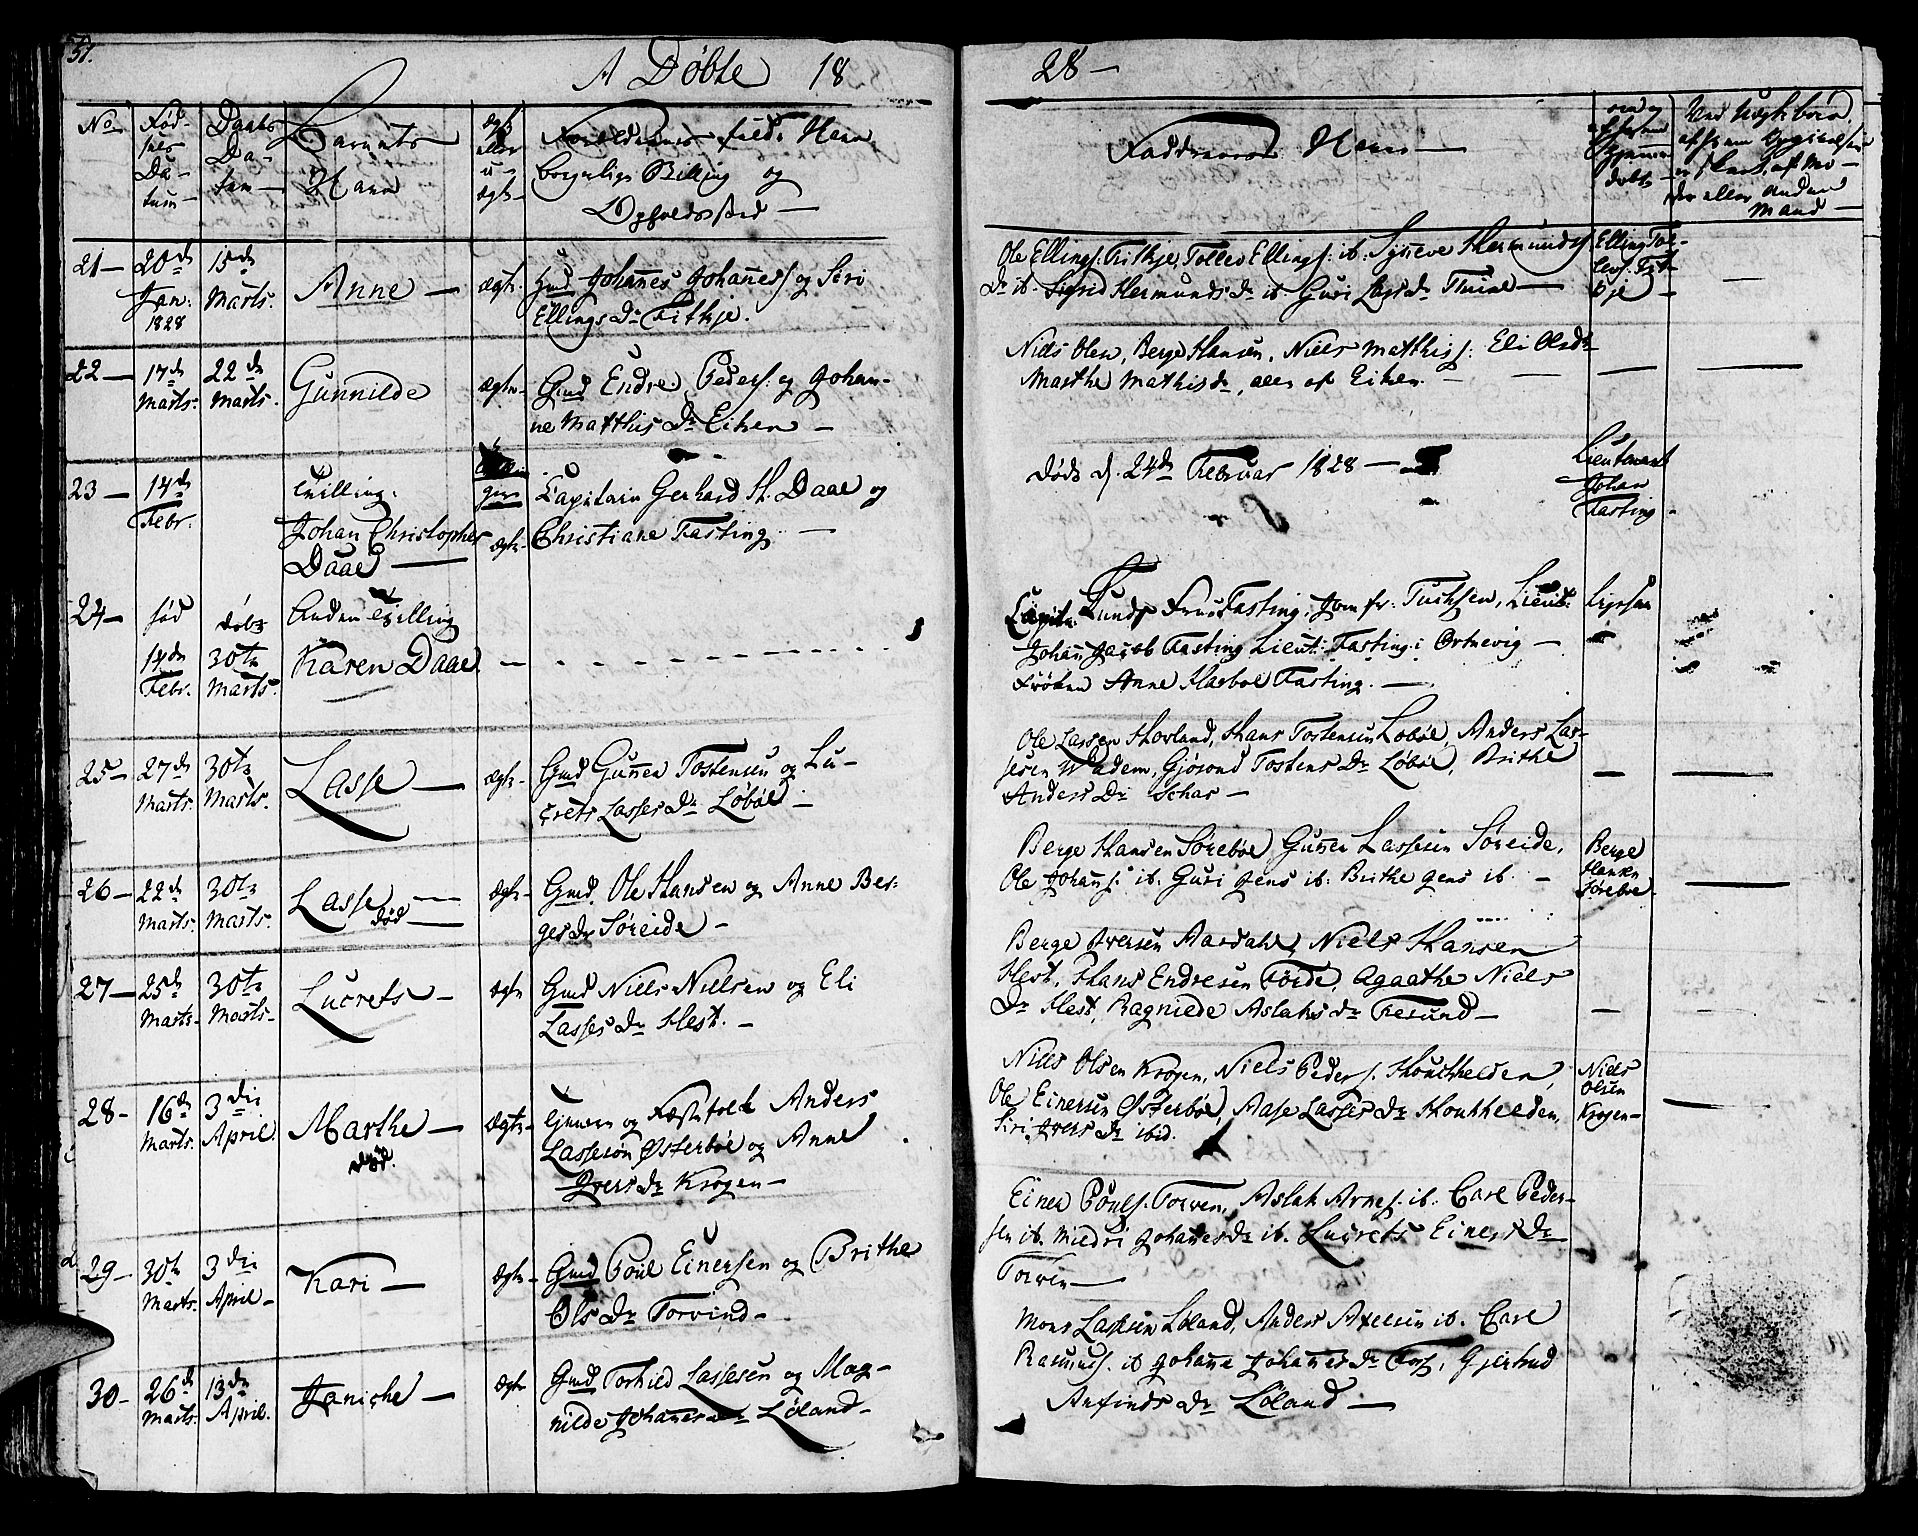 51.
A Døbte 18
28 —
No
Fød-
sels
Da-
tum —
Daabs
Da-
tum —
Barnets
Navn
ægte
eller
u-
ægte
Forældrenes fulde Navn,
borgerlige Stilling og
Opholdssted —
Faddrenes Navn —
døbte
Mand —
21 —
20de
Jan:
1828
15de
Marts.
Anne —
ægte.
Gmd Johañes Johañess. og Siri
Ellings Dr Fitkje.
Ole Ellings. Fitkje, Tollev Ellings. ib. Synneve Hermunds
Dr ib. Sigrid Hermunds Dr ib. Guri Lars Dr Thune —
Elling Tol-
levs. Fit-
kje —
22 —
17de
Marts.
22de
Marts.
Gunnilde
ægte —
Gmd Endre Peders. og Johan-
ne Matthis Dr Eiken —
Niels Olsen, Berge Hansen, Niels Matthiss. Eli Olsdr
Marthe Mathisdr, alle af Eiken. —
23 —
14de
Febr.
Tvilling.
Johan Christopher
Daae —
ægte —
Capitain Gerhard H. Daae og
Christiane Fasting —
Døde d. 24de Februar 1828 —
Lieutenant
Johan
Fasting —
24 —
fød
14de
Febr.
døbt
30te
Marts.
Anden Tvilling
Karen Daae
Capit. Lunds Frue Fasting, Jomfr: Tuchsen, Lieut:
Johañ Jacob Fasting Lieut: Fasting i Ortnevig —
Frøken Anne Harboe Fasting. —
Ligesaa
25 —
27de
Marts
30te
Marts.
Lasse —
ægte —
Gmd Guñer Tostensen og Lu-
crets Lasses Dr Løbøe —
Ole Lassen Hovland, Hans Tostensen Løbøe, Anders Las-
sesen Wadem, Gjøroud Tostens Dr Løbøe, Brithe
Anders Dr Schar —
26 —
22de
Marts.
30te
Marts.
Lasse —
død —
ægte —
Gmd. Ole Hansen og Anne Ber-
ges Dr Søreide —
Berge Hansen Sørebøe, Guñer Lassesen Søreide,
Ole Johañs. ib. Guri Jens ib. Brithe Jens ib. —
Berge
Hansen
Sørebøe
27 —
25de
Marts —
30te
Marts —
Lucrets —
ægte
Gmd Niels Nielsen og Eli
Lasses Dr Hest. —
Berge Iversen Aardahl, Niels Hansen
Hest, Hans Endresen Førde, Agaathe Niels
Dr Hest, Ragniede Aslaks Dr Tresund —
28 —
16de
Marts.
3die
April.
Marthe —
død.
ægte —
og Anders
Lassesøn Østerbøe og Anne
Ivers Dr Krogen —
Niels Olsen Krogen, Niels Peders.
Ole Einersen Østerbøe, Aase Lasses Dr
Siri Ivers Dr ibid.
Niels
Olsen
Krogen —
29 —
30te
Marts.
3die
April —
Kari —
ægte —
Gmd Poul Einersen og Brithe
Ols Dr Torvend —
Einer Pouls. Torven, Aslak Arnes. ib. Carl Peder-
sen ib. Miedri Johañes Dr ib. Lucrets Einers Dr
Torven —
30 —
26de
Marts.
13de
April.
Janiche —
ægte
Gmd Torkild Lassesen og Mag-
nilde Johañes Dr Løland —
Mons Lassesen Løland, Anders Axelsen ib. Carl
Rasmus. ib Johañe Johañes Dr Foss, Gjertrud
Anfinds Dr Løland —